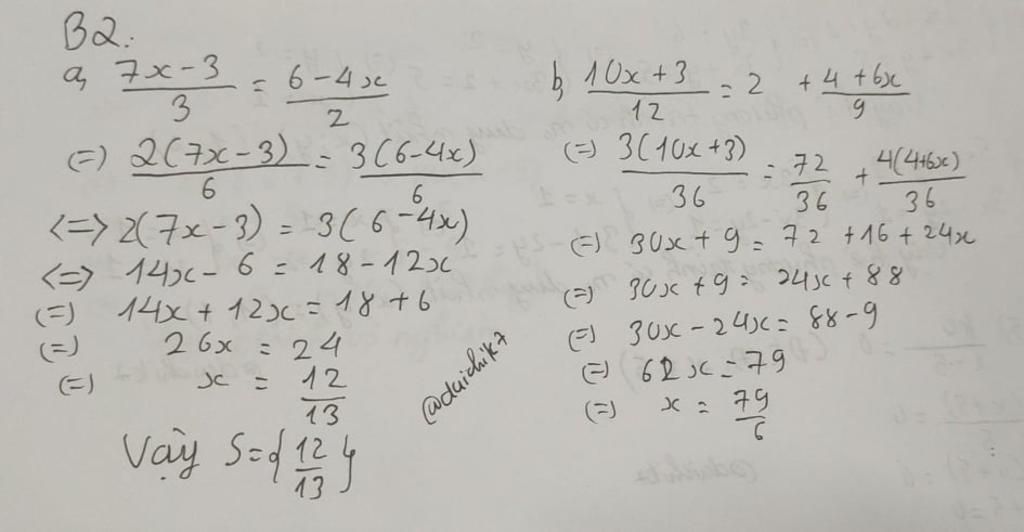 B2.
a, (7x-3)/3 = (6-4x)/2
(=) 2(7x-3)/6 = 3(6-4x)/6
<=> 2(7x-3) = 3(6-4x)
<=> 14x - 6 = 18 - 12x
(=) 14x + 12x = 18 + 6
(=) 26x = 24
(=) x = 12/13
Vậy S={12/13}
@duichik7
b, (10x+3)/12 = 2 + (4+6x)/9
(=) 3(10x+3)/36 = 72/36 + 4(4+6x)/36
(=) 30x + 9 = 72 + 16 + 24x
(=) 30x + 9 = 24x + 88
(=) 30x - 24x = 88 - 9
(=) 6x = 79
(=) x = 79/6